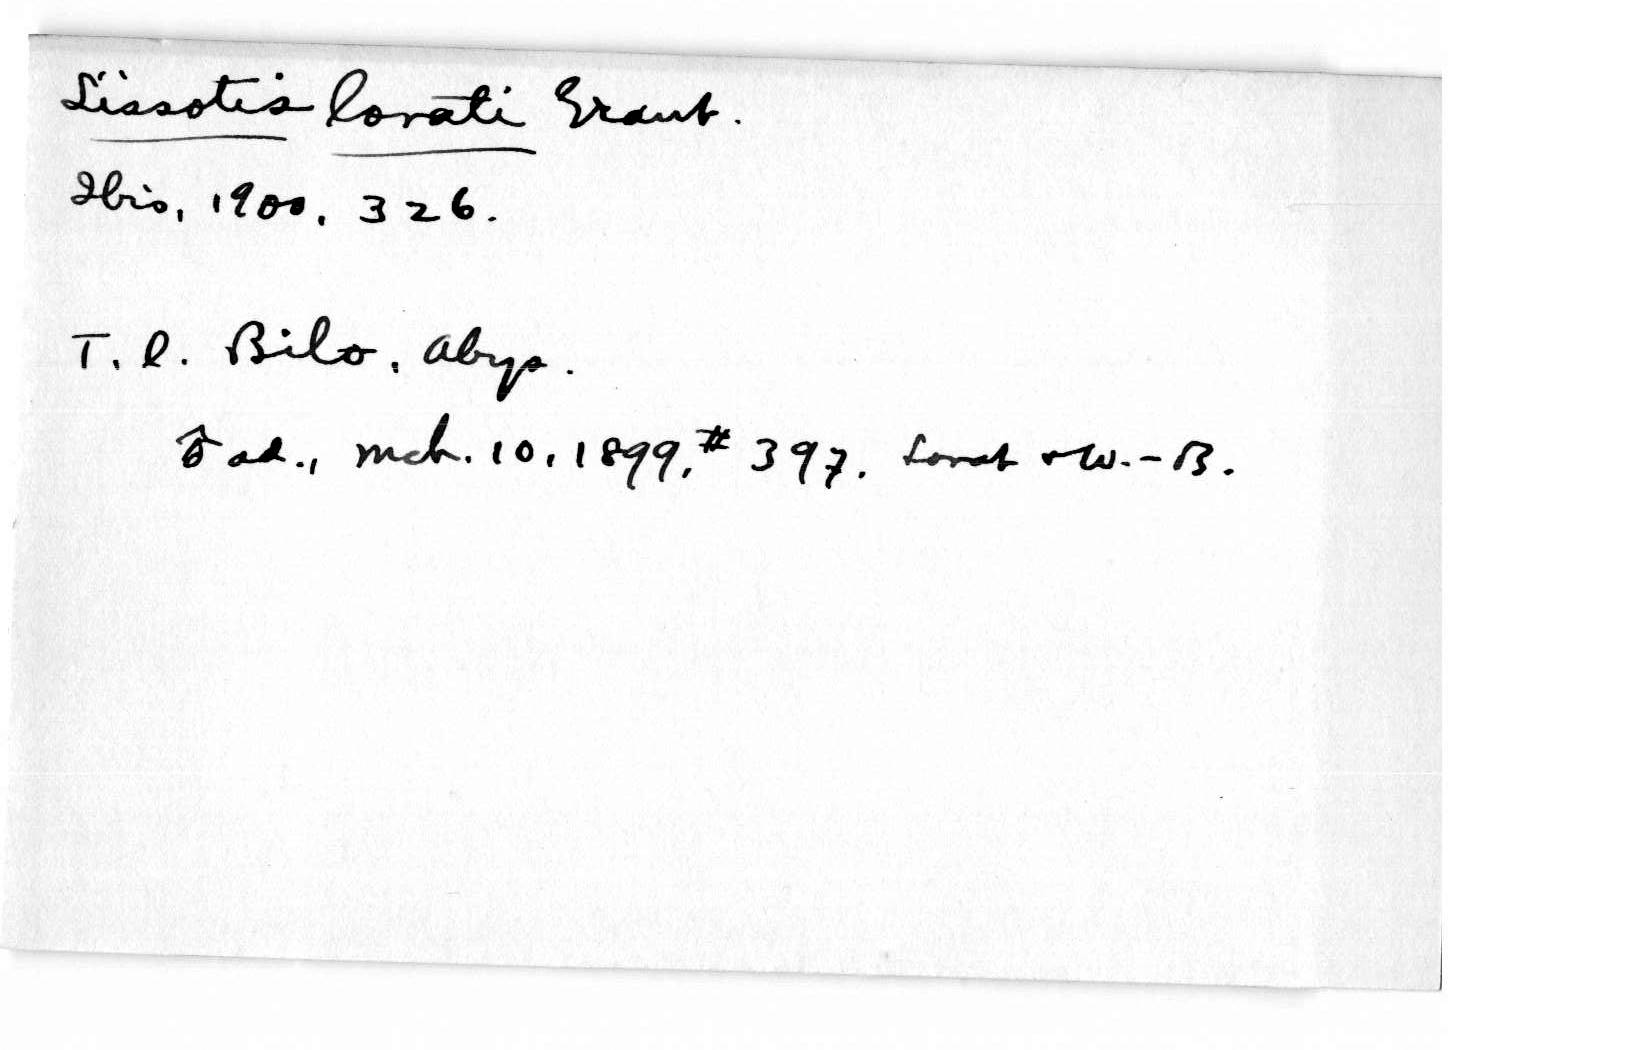 Lissotis lovati Grant.
Ibis, 1900, 326.
T. l. Bilo, Abys.
♂ ad., Mch. 10, 1899, # 397. Lovat & W.-B.